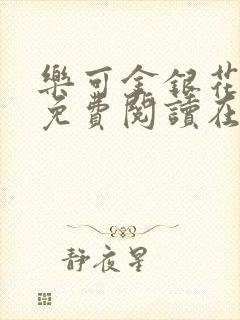 樂可金銀花
免費閱讀在
靜夜星